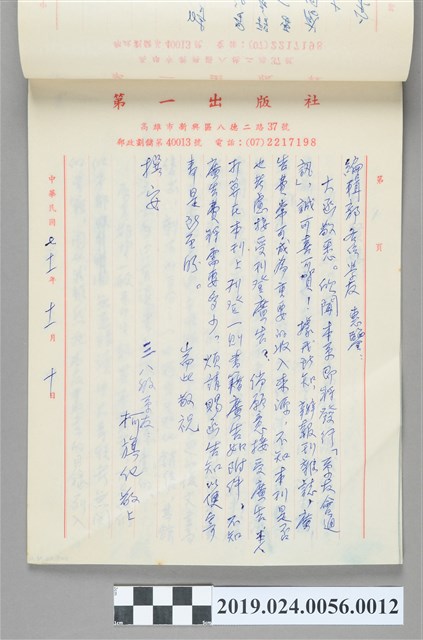 第一出版社
高雄市新興區八德二路37號
郵政劃儲第40013號 電話：(07)2217198
第 頁
編輯部各位學友 惠鑒：
大函敬悉。欣聞本系即將發行「系友會通
訊」，誠可喜可賀！據我所知，辦報刊雜誌，廣
告費常可成為重要的收入來源，不知本刊是否
也考慮接受刊登廣告？倘願意接受廣告，本人
打算在本刊上刊登一則書籍廣告如附件，不知
廣告費將需要多少？煩請賜函告知以便寄
專此敬祝
撰安
三八級系友
柯旗化敬上
中華民國七十一年十一月十日
2019.024.0056.0012